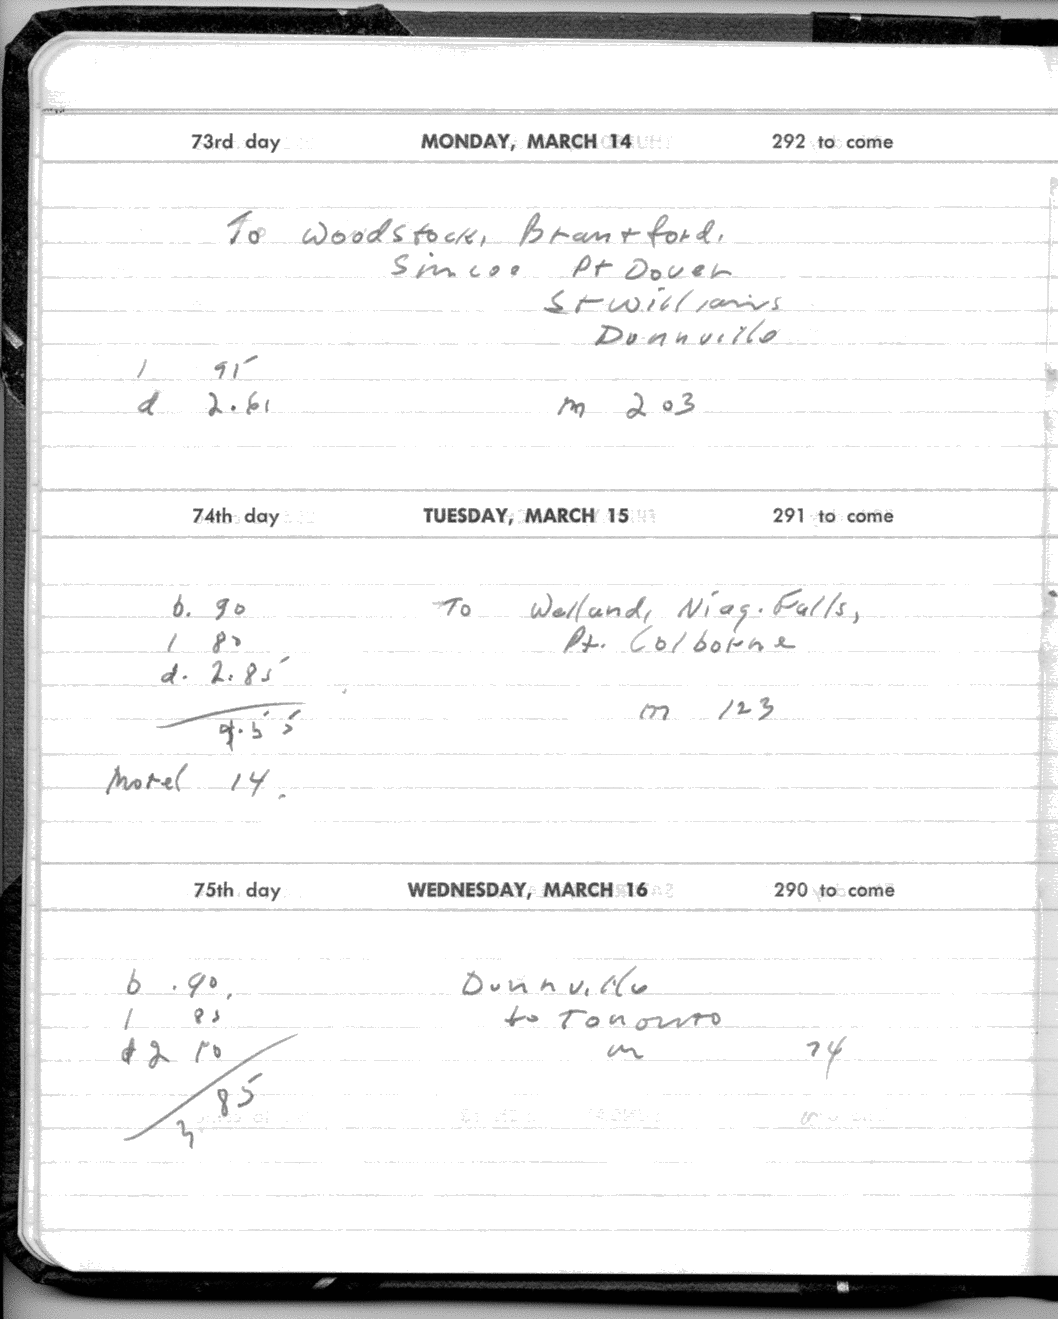 73rd day MONDAY, MARCH 14 292 to come
To Woodstock, Brantford,
Simcoe Pt Dover
St Williams
Dunnville
l 95
d 2.61 m 203
74th day TUESDAY, MARCH 15 291 to come
b. 90 To Welland, Niag. Falls,
l 80 Pt. Colborne
d. 2.85
4.55 m 123
Motel 14.
75th day WEDNESDAY, MARCH 16 290 to come
b .90. Dunnville
l 85 to Toronto
d 2 10 m 74
3 85